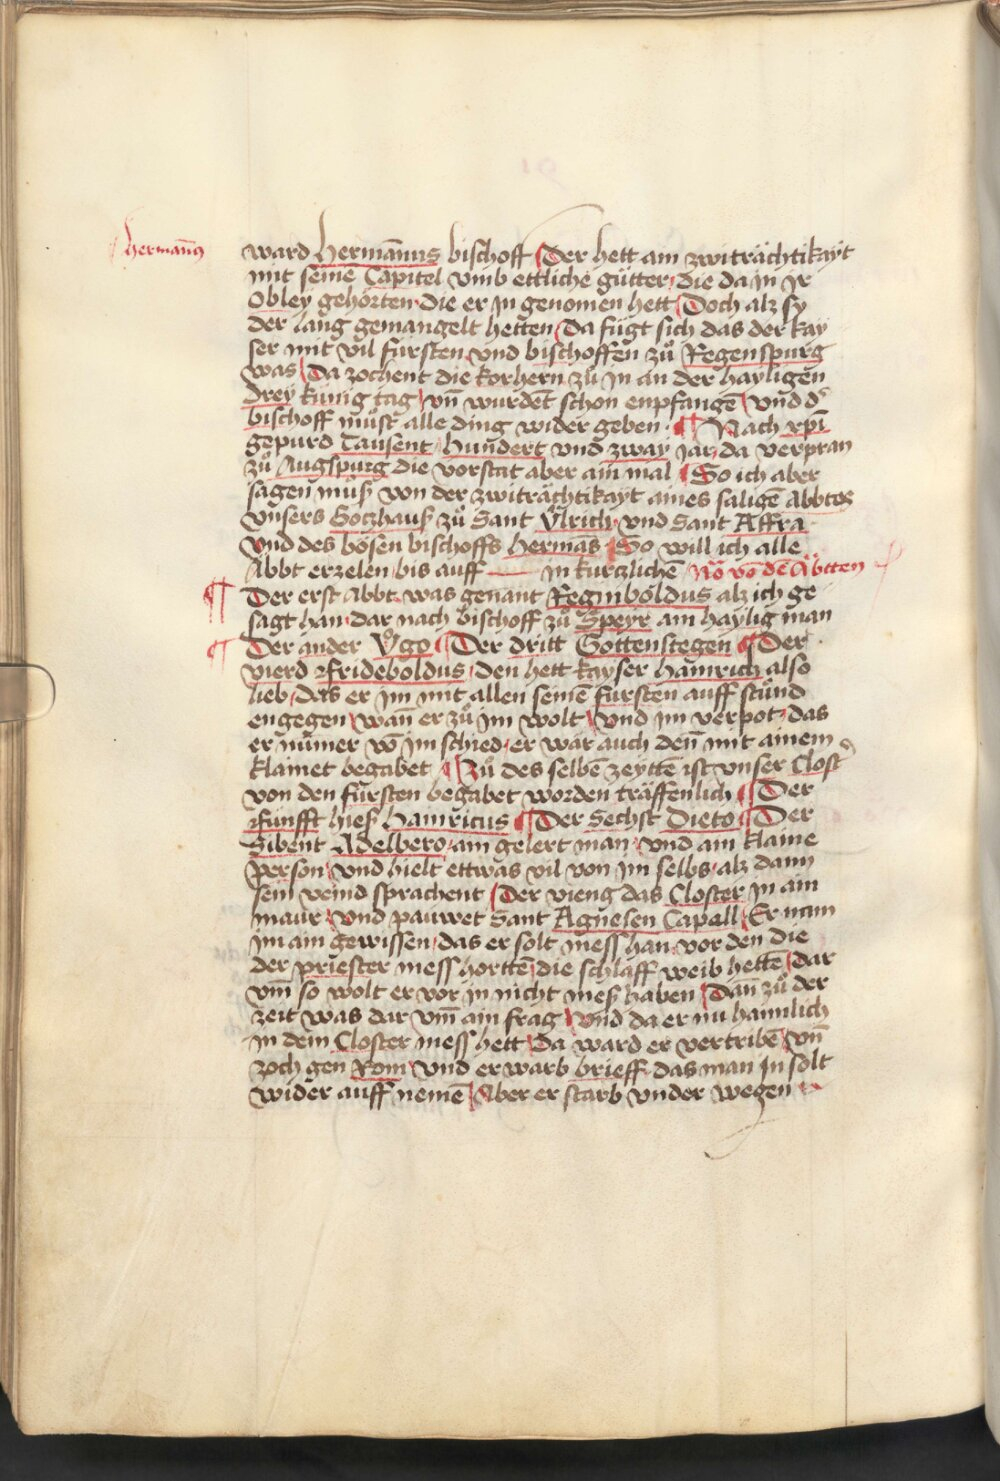 hermañ9
ward hermānus bischoff Der hett ain zwiträchtikayt
mit seinē Capitel vmb ettliche gütter die da in Ir
Obley gehorten die er in genomen hett Doch alz sy
der lang gemangelt hetten Da fügt sich das der kay
ser mit vil fürsten vnd bischoffen zů Regenspurg
was Da zochent die korhern zů in an der hayligen
drey küng tag vn̄ wurdēt schon enpfangē vnd d'
bischoff můst alle ding wider geben ¶ Nach xp̄i
gepurd Tausent hundert vnd zway jar da verpran
zů Augspurg die vorstat aber ain mal So ich aber
sagen müß von der zwiträchtikayt aines säligē Abbtes
vnsers Gotzhauß zů Sant Vͦlrich vnd Sant Affra
Vnd des bösen bischoffs hermās So will ich alle
Abbt erzelen bis auff — in kurtzlichē Nō vō dē Äbtten
¶ Der erst Abbt was genant Reginboldus alz ich ge
sagt han dar nach bischoff zů Speyr ain haylig man
¶ Der ander Vͦgo ¶ Der dritt Gottenstegen ¶ Der
vierd Frideboldus den hett kayser hainrich also
lieb das er im mit allen seinē fürsten auff stůnd
engegen wan̄ er zů im wolt vnd im verpot das
er nūmer vō im schied er wär auch den̄ mit ainem
klainet begabet ¶ Zů des selbē zeyttē ist vnser Clost'
von den fürsten begabet worden träffenlich ¶ Der
Fünfft hieß hainricus ¶ Der Sechst Dieto ¶ Der
Sibent Adelbero ain gelert man vnd ain klaine
person vnd hielt ettwas vil von im selbs alz dann
sein veind sprachent Der vieng das Closter in ain
maur vnd pauwet Sant Agnesen Capall Er nam
im ain gewissen das er solt mess han vor den die
der priester mess hortte͂ die schlaff weib hettē Dar
vm̄ so wolt er vor in nicht meß haben Dan zů der
zeit was dar vm̄ ain frag Vnd da er nu hainlich
in dem Closter mess hett Da ward er vertribē vn̄
zoch gen Rom vnd erwarb brieff das man in solt
wider auff nemē Aber er starb vnder wegen